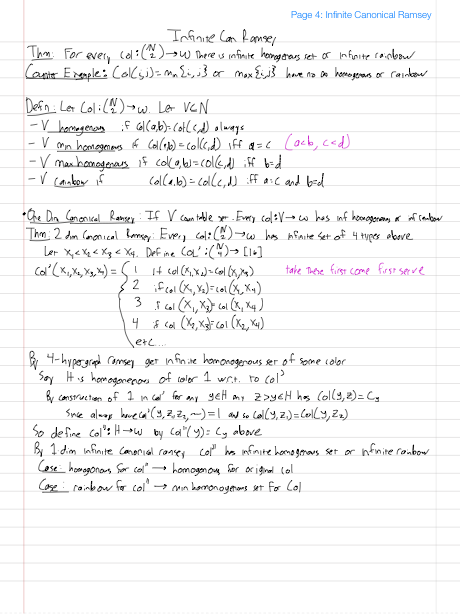 Page 4: Infinite Canonical Ramsey
Infinite Can Ramsey
Thm: For every col: (N 2) → ω there is infinite homogenous set or infinite rainbow
Counter Example: Col(i,j) = min{i,j} or max{i,j} have no ∞ homogenous or rainbow
Defn: Let Col: (N 2) → ω. Let V⊆N
- V homogenous if col(a,b)=col(c,d) always
- V min homogenous if col(a,b)=col(c,d) iff a=c (a<b, c<d)
- V max homogenous if col(a,b)=col(c,d) iff b=d
- V rainbow if col(a,b)=col(c,d) iff a=c and b=d
• One Dim Canonical Ramsey: If V countable set. Every col: V→ω has inf homogenous or inf rainbow
Thm: 2 dim Canonical Ramsey: Every col: (N 2) → ω has infinite set of 4 types above
Let x₁<x₂<x₃<x₄. Define COL': (N 4) → [16]
col'(x₁,x₂,x₃,x₄) = { 1 if col(x₁,x₂)=col(x₁,x₃) take these first come first serve
2 if col(x₁,x₂)=col(x₁,x₄)
3 if col(x₁,x₃)=col(x₁,x₄)
4 if col(x₂,x₃)=col(x₂,x₄)
etc...
By 4-hypergraph ramsey get infinite homonogenous set of some color
Say H is homogeneous of color 1 w.r.t. to col'
By construction of 1 in col' for any y∈H any z>y∈H has col(y,z)=Cy
Since always have col'(y,z₁,z₂,~)=1 and so col(y,z₁)=col(y,z₂)
So define col'': H→ω by col''(y)=Cy above
By 1 dim infinite canonical ramsey col'' has infinite homogenous set or infinite rainbow
Case: homogonous for col'' → homogenous for original col
Case: rainbow for col'' → min homonogenous set for Col